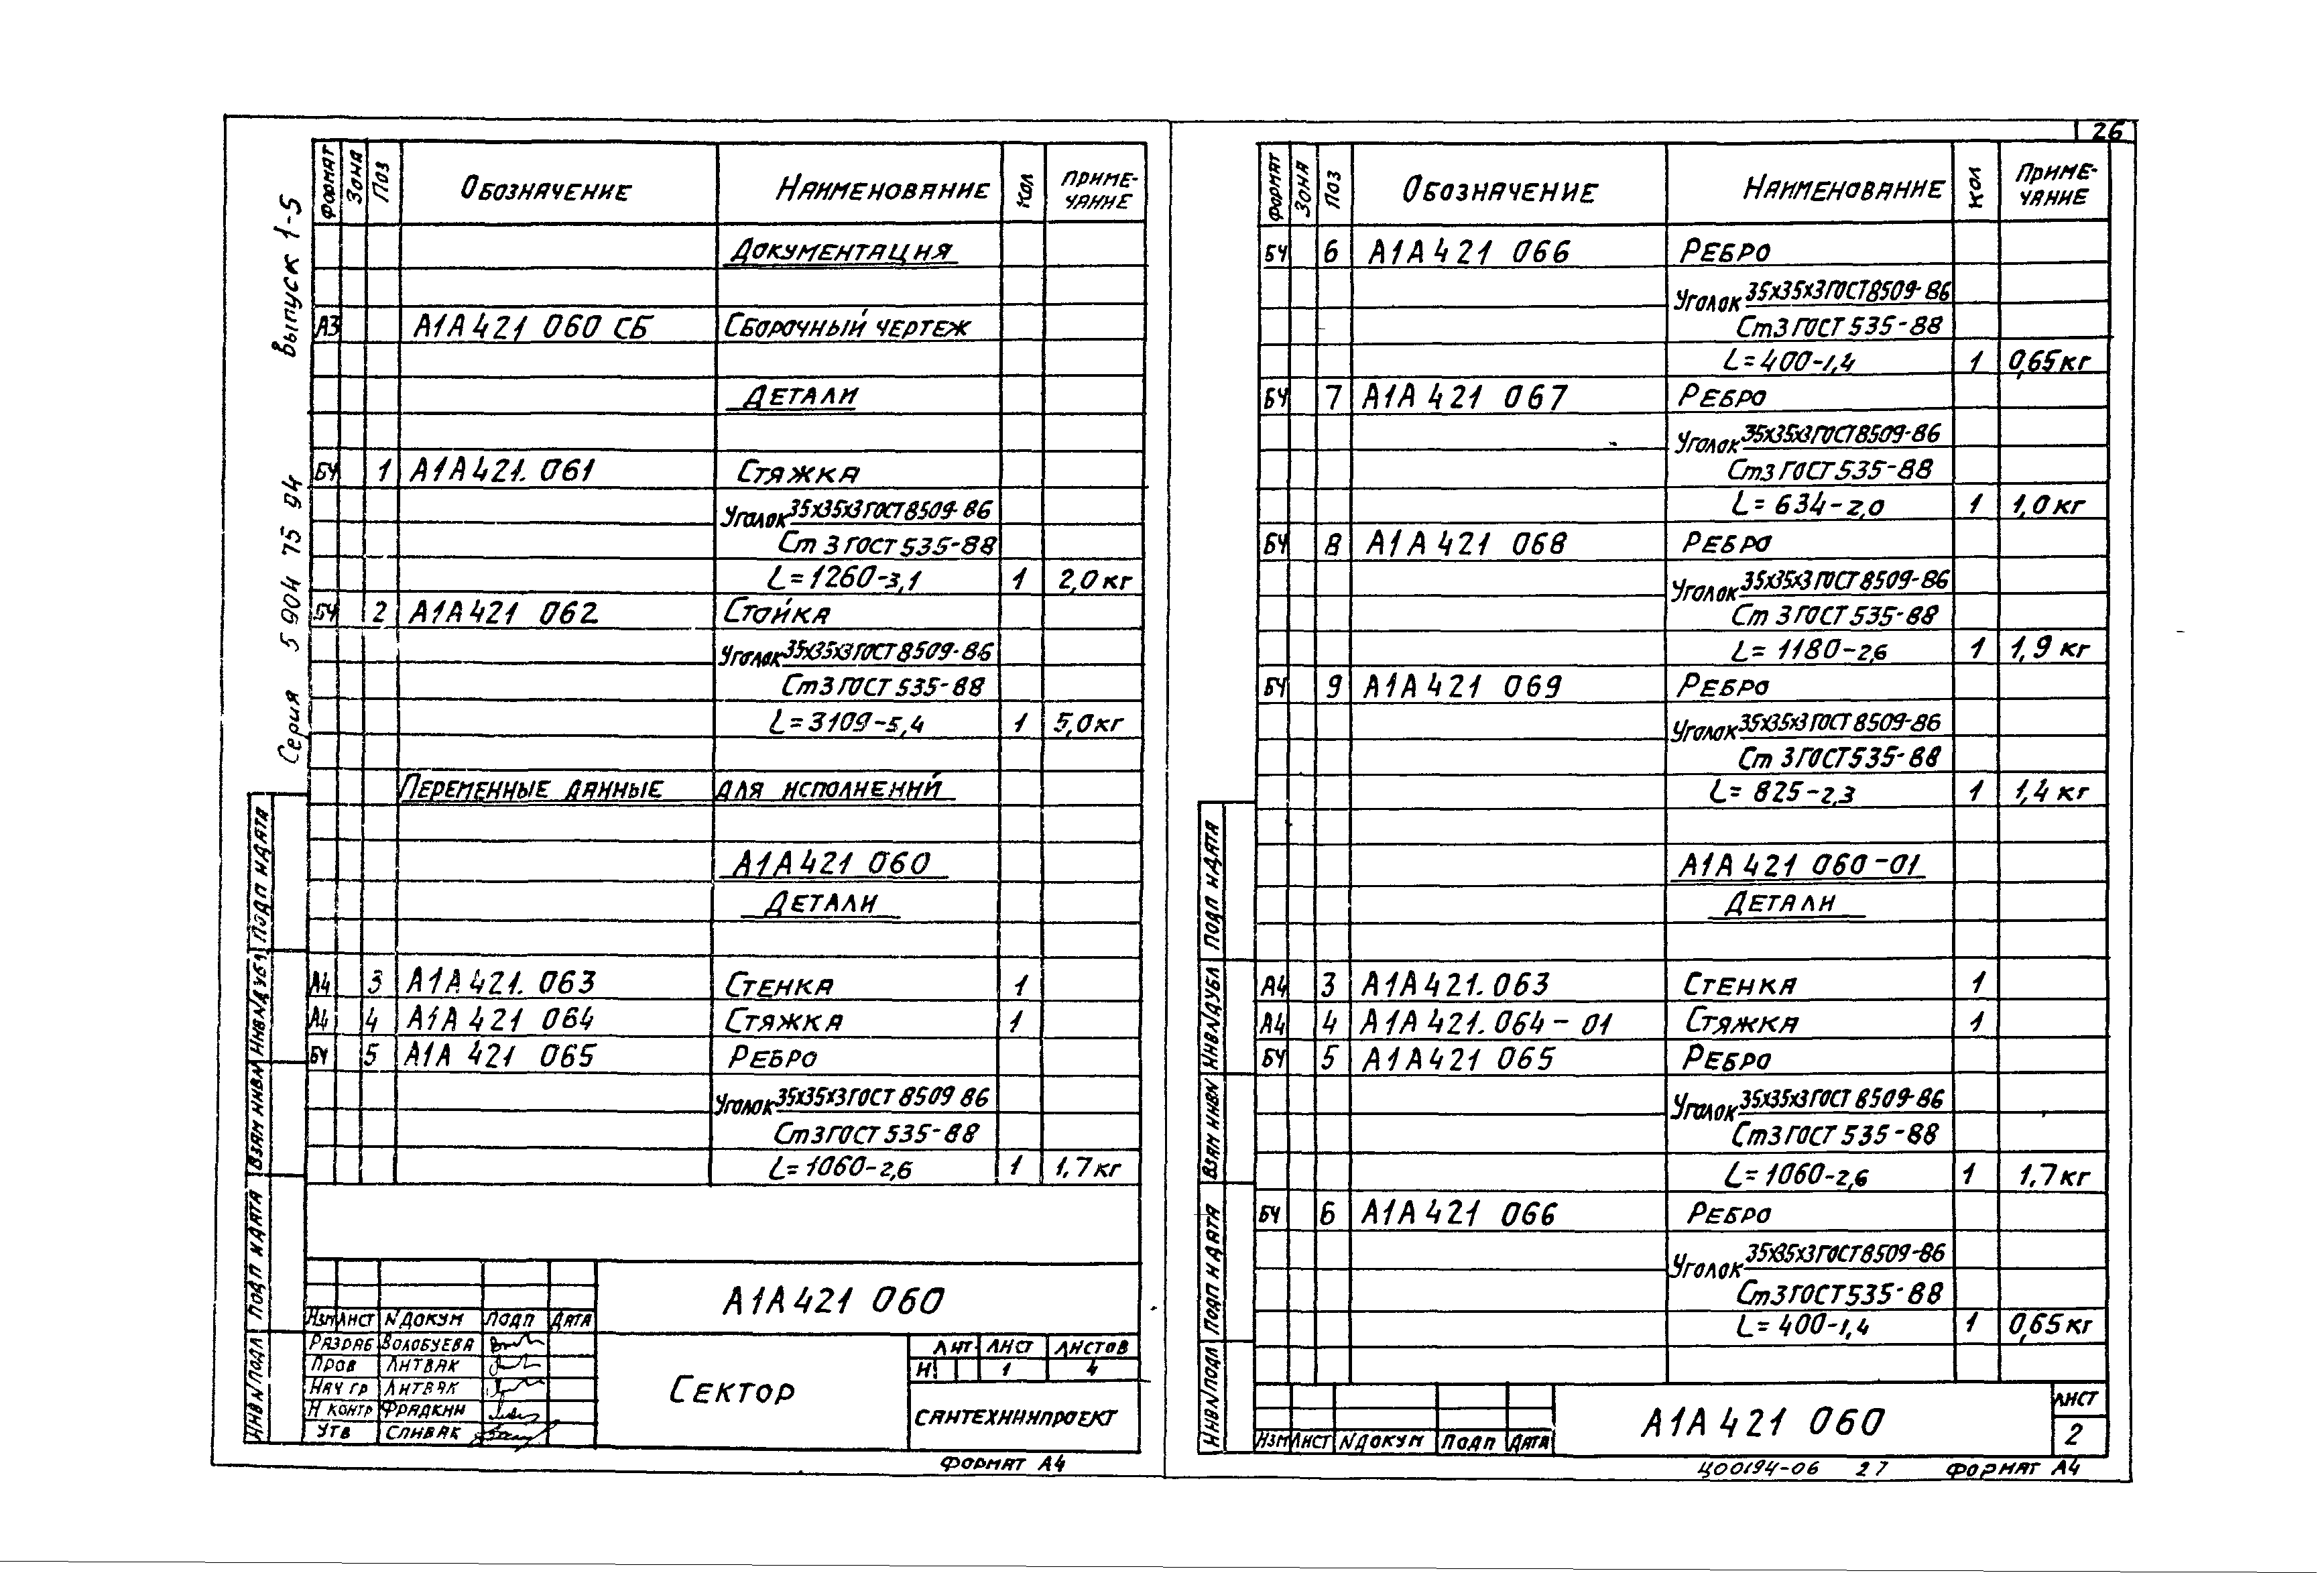 26
Серия 5 904 75 94 Выпуск 1-5
Формат Зона Поз Обозначение Наименование Кол Приме-
чание
Документация
А3 А1А421 060 СБ Сборочный чертеж
Детали
БЧ 1 А1А421.061 Стяжка
Уголок 35х35х3 ГОСТ 8509-86
Ст 3 ГОСТ 535-88
L=1260-3,1 1 2,0 кг
БЧ 2 А1А421 062 Стойка
Уголок 35х35х3 ГОСТ 8509-86
Ст3 ГОСТ 535-88
L=3109-5,4 1 5,0 кг
Переменные данные для исполнений
А1А421 060
Детали
А4 3 А1А421.063 Стенка 1
А4 4 А1А 421 064 Стяжка 1
БЧ 5 А1А 421 065 Ребро
Уголок 35х35х3 ГОСТ 8509 86
Ст3 ГОСТ 535-88
L=1060-2,6 1 1,7 кг
А1А421 060
Изм Лист N докум Подп Дата
Разраб Волобуева
Пров Литвак
Нач гр Литвак
Н контр Фрадкин
Утв Спивак
Сектор
Лит Лист Листов
И 1 4
Сантехниипроект
Формат А4
Инв N подл Подп и дата Взам инв N Инв N дубл Подп и дата
Формат Зона Поз Обозначение Наименование Кол Приме-
чание
БЧ 6 А1А421 066 Ребро
Уголок 35х35х3 ГОСТ 8509-86
Ст3 ГОСТ 535-88
L=400-1,4 1 0,65 кг
БЧ 7 А1А 421 067 Ребро
Уголок 35х35х3 ГОСТ 8509-86
Ст3 ГОСТ 535-88
L=634-2,0 1 1,0 кг
БЧ 8 А1А 421 068 Ребро
Уголок 35х35х3 ГОСТ 8509-86
Ст 3 ГОСТ 535-88
L=1180-2,6 1 1,9 кг
БЧ 9 А1А421 069 Ребро
Уголок 35х35х3 ГОСТ 8509-86
Ст 3 ГОСТ 535-88
L=825-2,3 1 1,4 кг
А1А 421 060-01
Детали
А4 3 А1А421.063 Стенка 1
А4 4 А1А 421.064-01 Стяжка 1
БЧ 5 А1А421 065 Ребро
Уголок 35х35х3 ГОСТ 8509-86
Ст3 ГОСТ 535-88
L=1060-2,6 1 1,7 кг
БЧ 6 А1А421 066 Ребро
Уголок 35х35х3 ГОСТ 8509-86
Ст3 ГОСТ 535-88
L=400-1,4 1 0,65 кг
Изм Лист N докум Подп Дата
А1А421 060
Лист
2
Ц00194-06 27 Формат А4
Инв N подл Подп и дата Взам инв N Инв N дубл Подп и дата